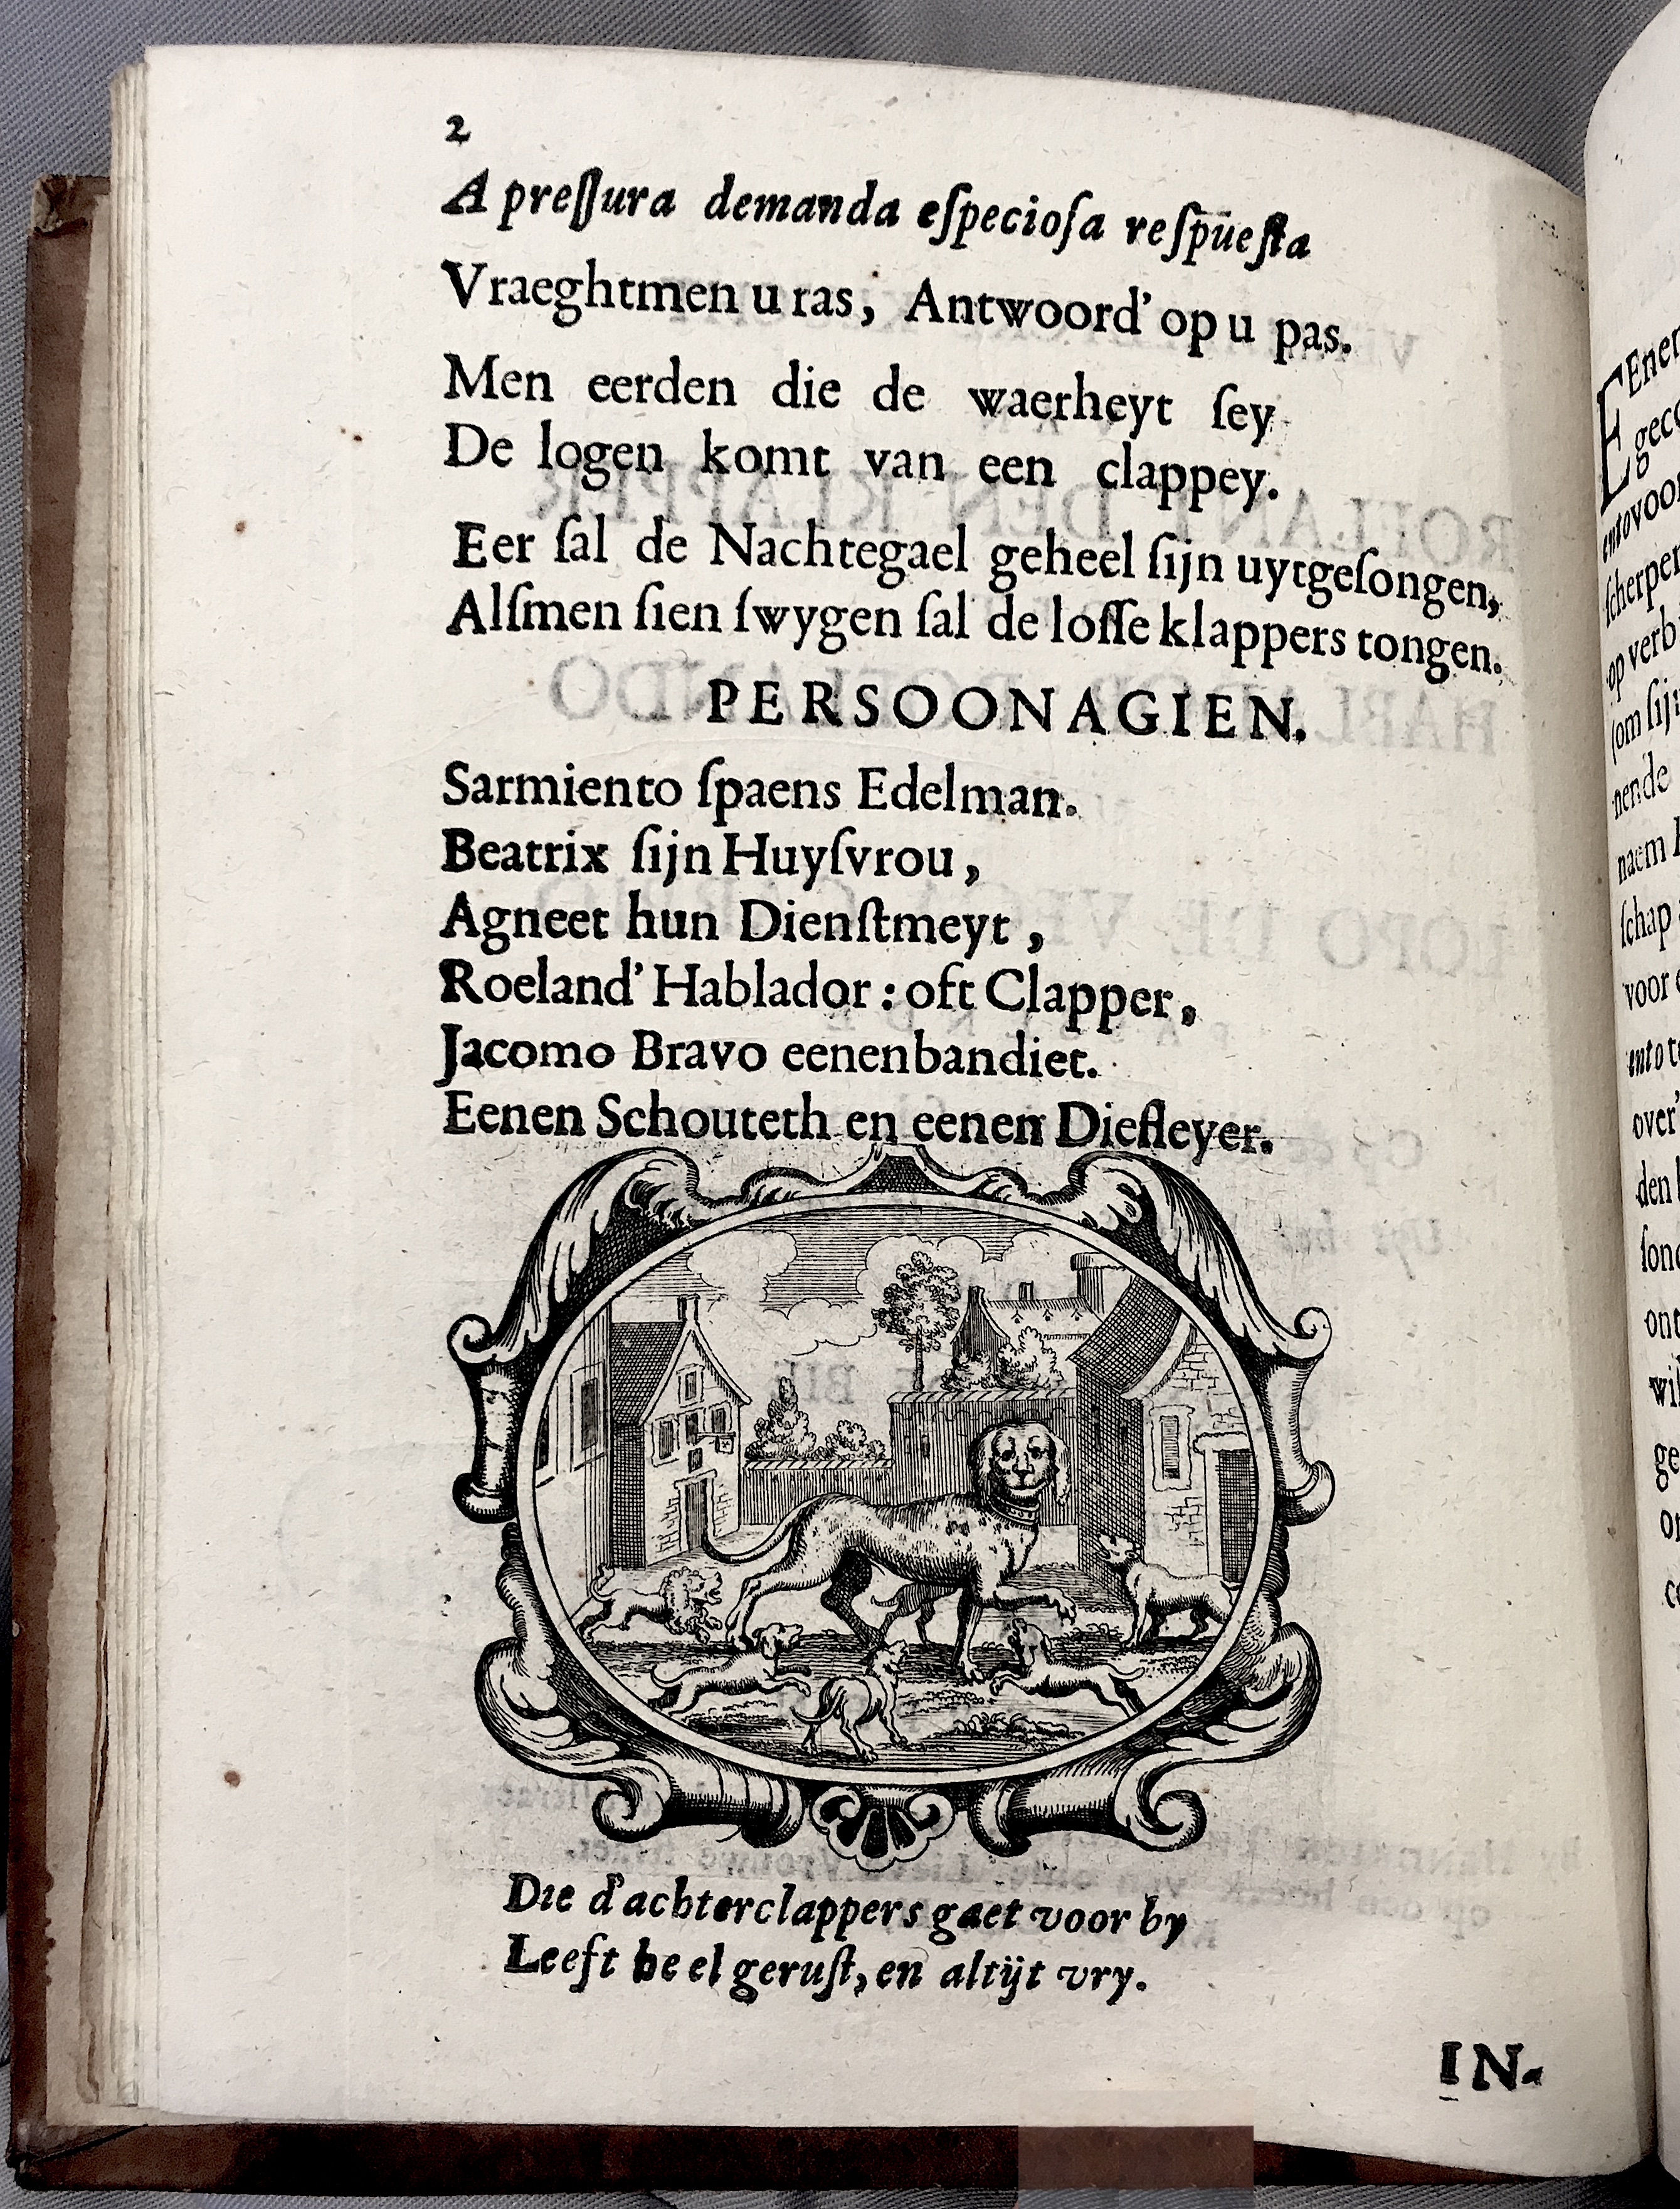 2
A preſſura demanda eſpecioſa reſpueſta
Vraeghtmen u ras, Antwoord' op u pas.
Men eerden die de waerheyt ſey
De logen komt van een clappey.
Eer ſal de Nachtegael geheel ſijn uytgeſongen,
Alſmen ſien ſwygen ſal de loſſe klappers tongen.
PERSOONAGIEN.
Sarmiento ſpaens Edelman.
Beatrix ſijn Huyſvrou,
Agneet hun Dienſtmeyt,
Roeland' Hablador: oft Clapper,
Jacomo Bravo eenen bandiet.
Eenen Schouteth en eenen Diefleyer.
Die d'achterclappers gaet voor by
Leeft heel geruſt, en altijt vry.
IN-